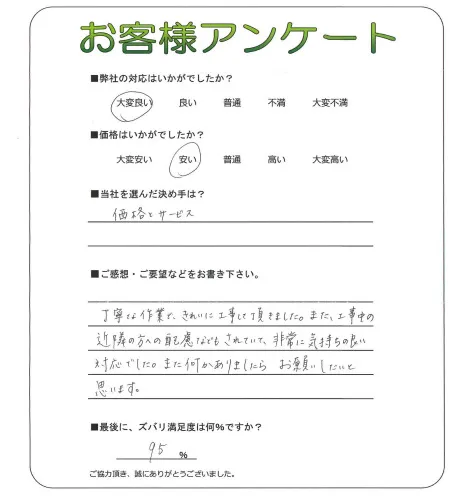 お客様アンケート
■弊社の対応はいかがでしたか？
大変良い 良い 普通 不満 大変不満
■価格はいかがでしたか？
大変安い 安い 普通 高い 大変高い
■当社を選んだ決め手は？
価格とサービス
■ご感想・ご要望などをお書き下さい。
丁寧な作業で、きれいに工事して頂きました。また、工事中の
近隣の方への配慮などもされていて、非常に気持ちの良い
対応でした。また何かありましたら お願いしたいと
思います。
■最後に、ズバリ満足度は何%ですか？
95 %
ご協力頂き、誠にありがとうございました。